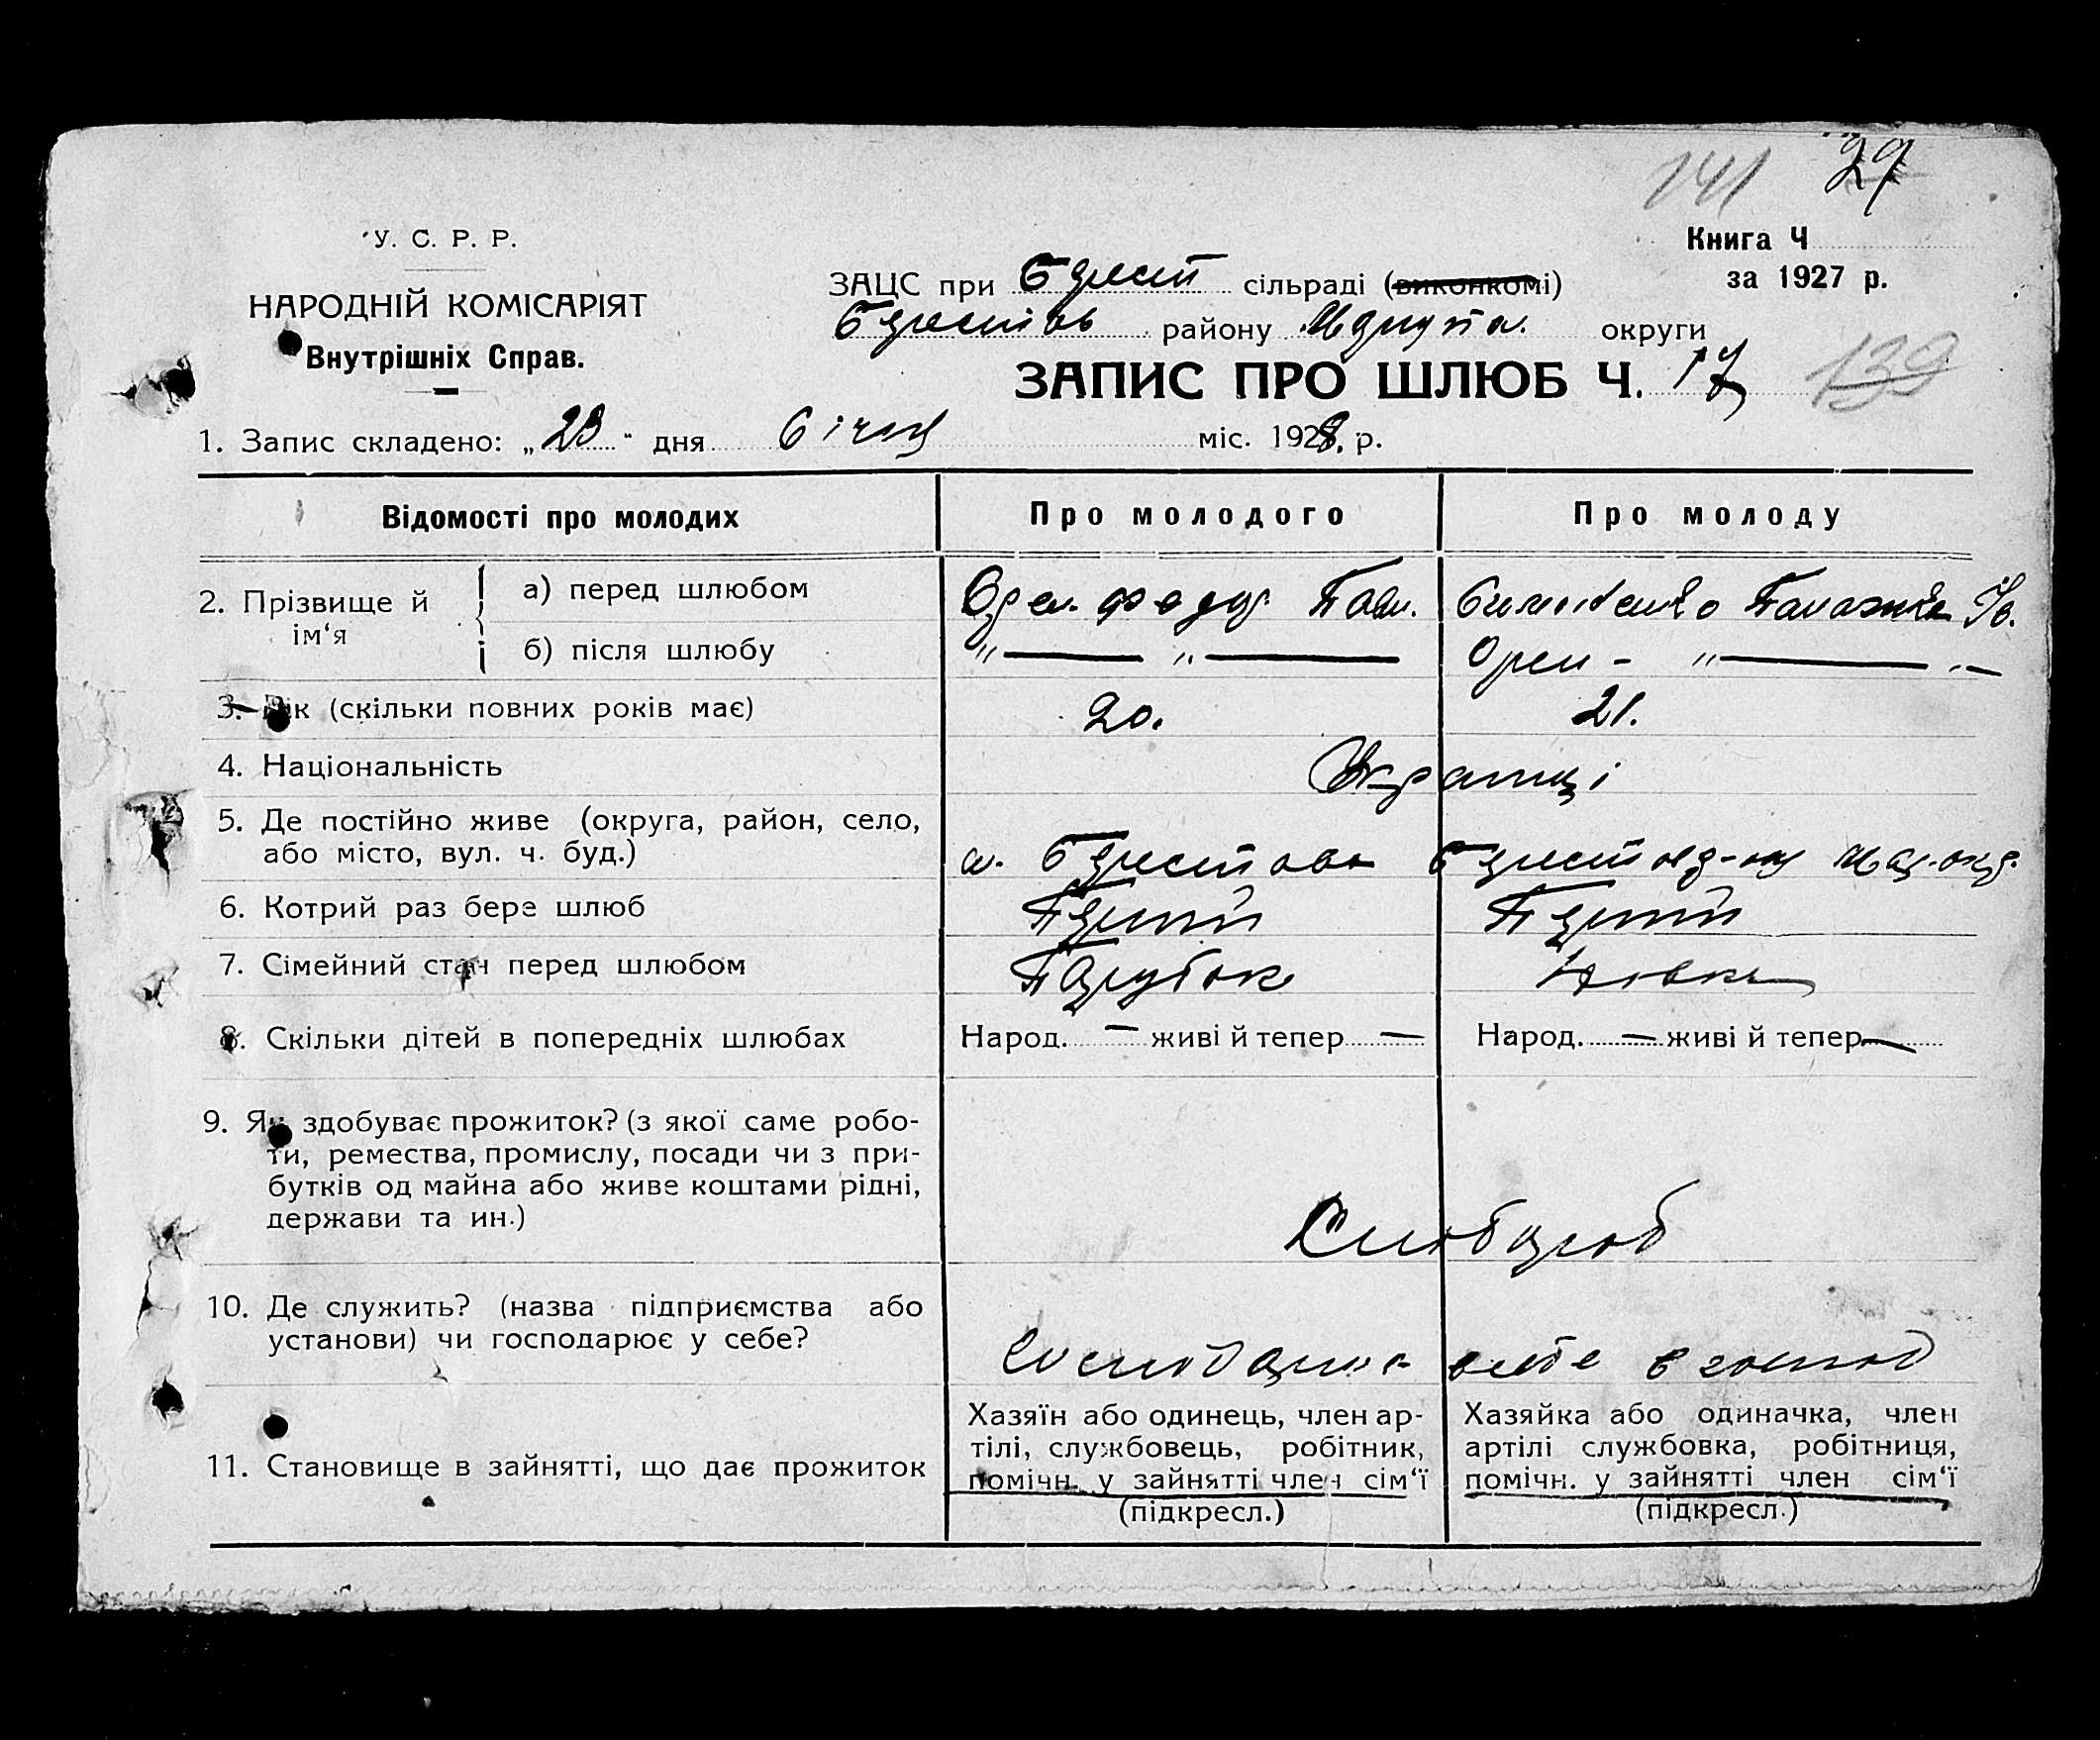 141 29
У. С. Р. Р.
НАРОДНІЙ КОМІСАРІЯТ
Внутрішніх Справ.
Книга Ч
за 1927 р.
ЗАЦС при Берест сільраді (виконкомі)
Берестов району округи
ЗАПИС ПРО ШЛЮБ Ч. 17
139
1. Запис складено: „23" дня Січня міс. 1928 р.
Відомості про молодих Про молодого Про молоду
2. Прізвище й ім‘я
а) перед шлюбом Орел Федор Пав. Симоненко Палажка Ів.
б) після шлюбу " — " — Орел - " — " —
3. Вік (скільки повних років має) 20. 21.
4. Національність Українці
5. Де постійно живе (округа, район, село,
або місто, вул. ч. буд.) с. Берестове
6. Котрий раз бере шлюб Перший Перший
7. Сімейний стан перед шлюбом Парубок Дівка
8. Скільки дітей в попередніх шлюбах Народ. — живі й тепер — Народ. — живі й тепер —
9. Як здобуває прожиток? (з якої саме робо-
ти, ремества, промислу, посади чи з при-
бутків од майна або живе коштами рідні,
держави та ин.)
Хлібороб
10. Де служить? (назва підприємства або
установи) чи господарює у себе?
себе в господ
11. Становище в зайнятті, що дає прожиток
Хазяїн або одинець, член ар-
тілі, службовець, робітник,
помічн. у зайнятті член сім‘ї
(підкресл.)
Хазяйка або одиначка, член
артілі службовка, робітниця,
помічн. у зайнятті член сім‘ї
(підкресл.)